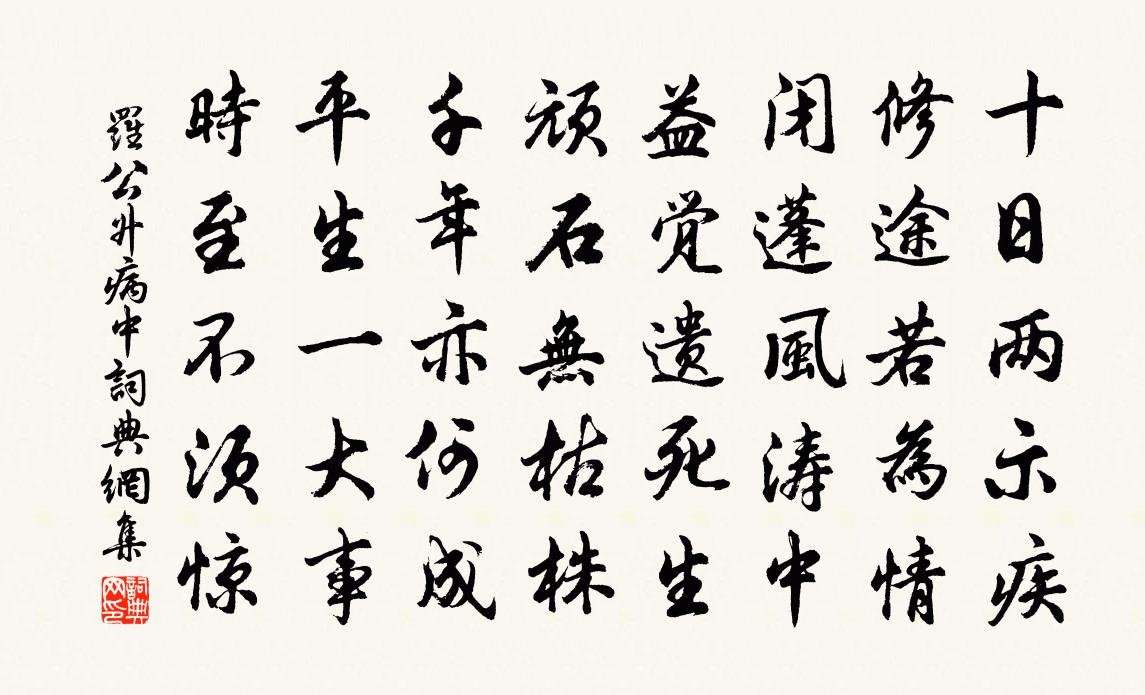 十日两示疾
修途若為情
闭蓬風涛中
益觉遗死生
顽石無枯株
千年亦何成
平生一大事
時至不须惊
羅公升病中詞典網集
詞典网印